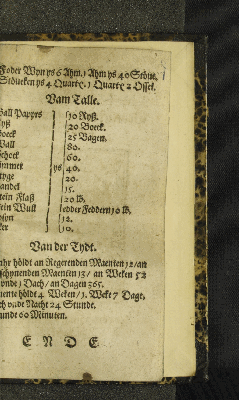 Foder Wyn ys 6 Ahm, 1 Ahm ys 40 Stöue,
Stöueken ys 4 Quarte, 1 Quarte 2 Össel.
Vam Talle.
Ball Papyrs 10 Ryß.
Ryß 20 Boeck.
Boeck 25 Bagen.
Wall 80.
Schock 60.
Timmer ys 40.
Styge 20.
Mandel 15.
Stein Flaß 20 lb.
Stein Wull edder Feddern 10 lb.
Dosyn 12.
Deker 10.
Van der Tydt.
Jahr höldt an Regerenden Maenten 12/ an
schynenden Maenten 13/ an Weken 52
vnde 1 Dach/ an Dagen 365.
Maente höldt 4 Weken/ 1. Weke 7 Dage,
Dach vnde Nacht 24 Stunde.
Stunde 60 Minuten.
E N D E